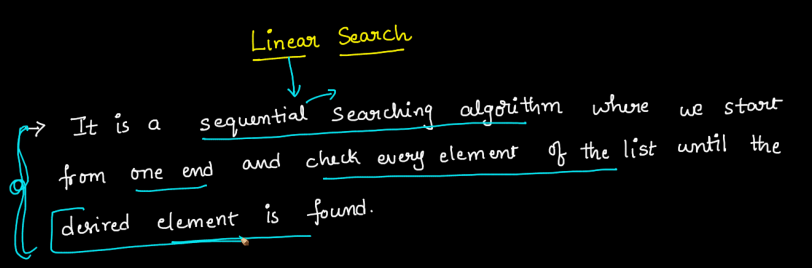 Linear Search
It is a sequential searching algorithm where we start
from one end and check every element of the list until the
desired element is found.